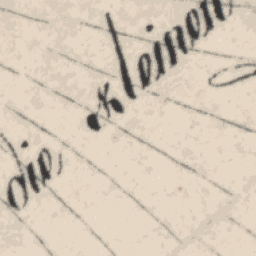 die kleinen